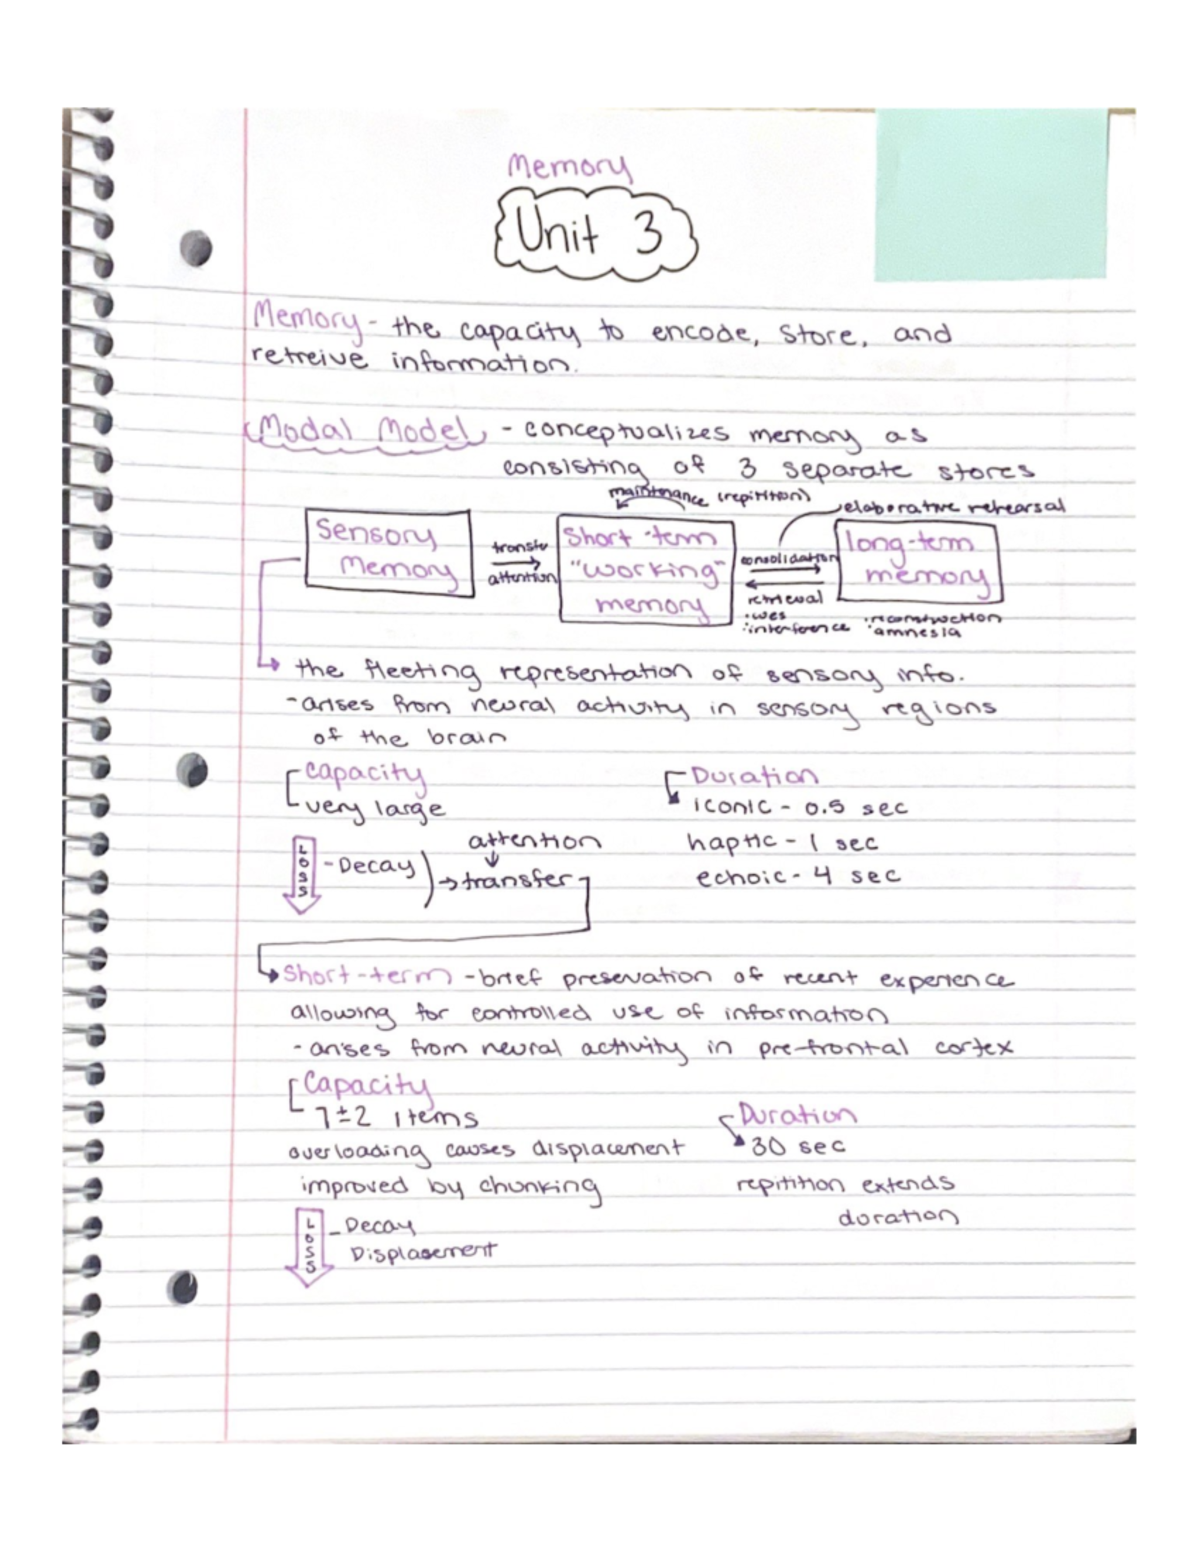 Memory
Unit 3
Memory - the capacity to encode, store, and
retreive information.
Modal Model - conceptualizes memory as
consisting of 3 separate stores
maintenance (repitition)
elaborative rehearsal
Sensory
Memory
transfer
attention
Short-term
"working"
memory
consolidation
retrieval
interference
long-term
memory
reconstruction
amnesia
the fleeting representation of sensory info.
- arises from neural activity in sensory regions
of the brain
Capacity
very large
Duration
iconic - 0.5 sec
haptic - 1 sec
echoic - 4 sec
LOSS
- Decay
attention
transfer
Short-term - brief preservation of recent experience
allowing for controlled use of information
- arises from neural activity in pre-frontal cortex
Capacity
7±2 items
overloading causes displacement
improved by chunking
Duration
30 sec
repitition extends
duration
LOSS
- Decay
Displacement